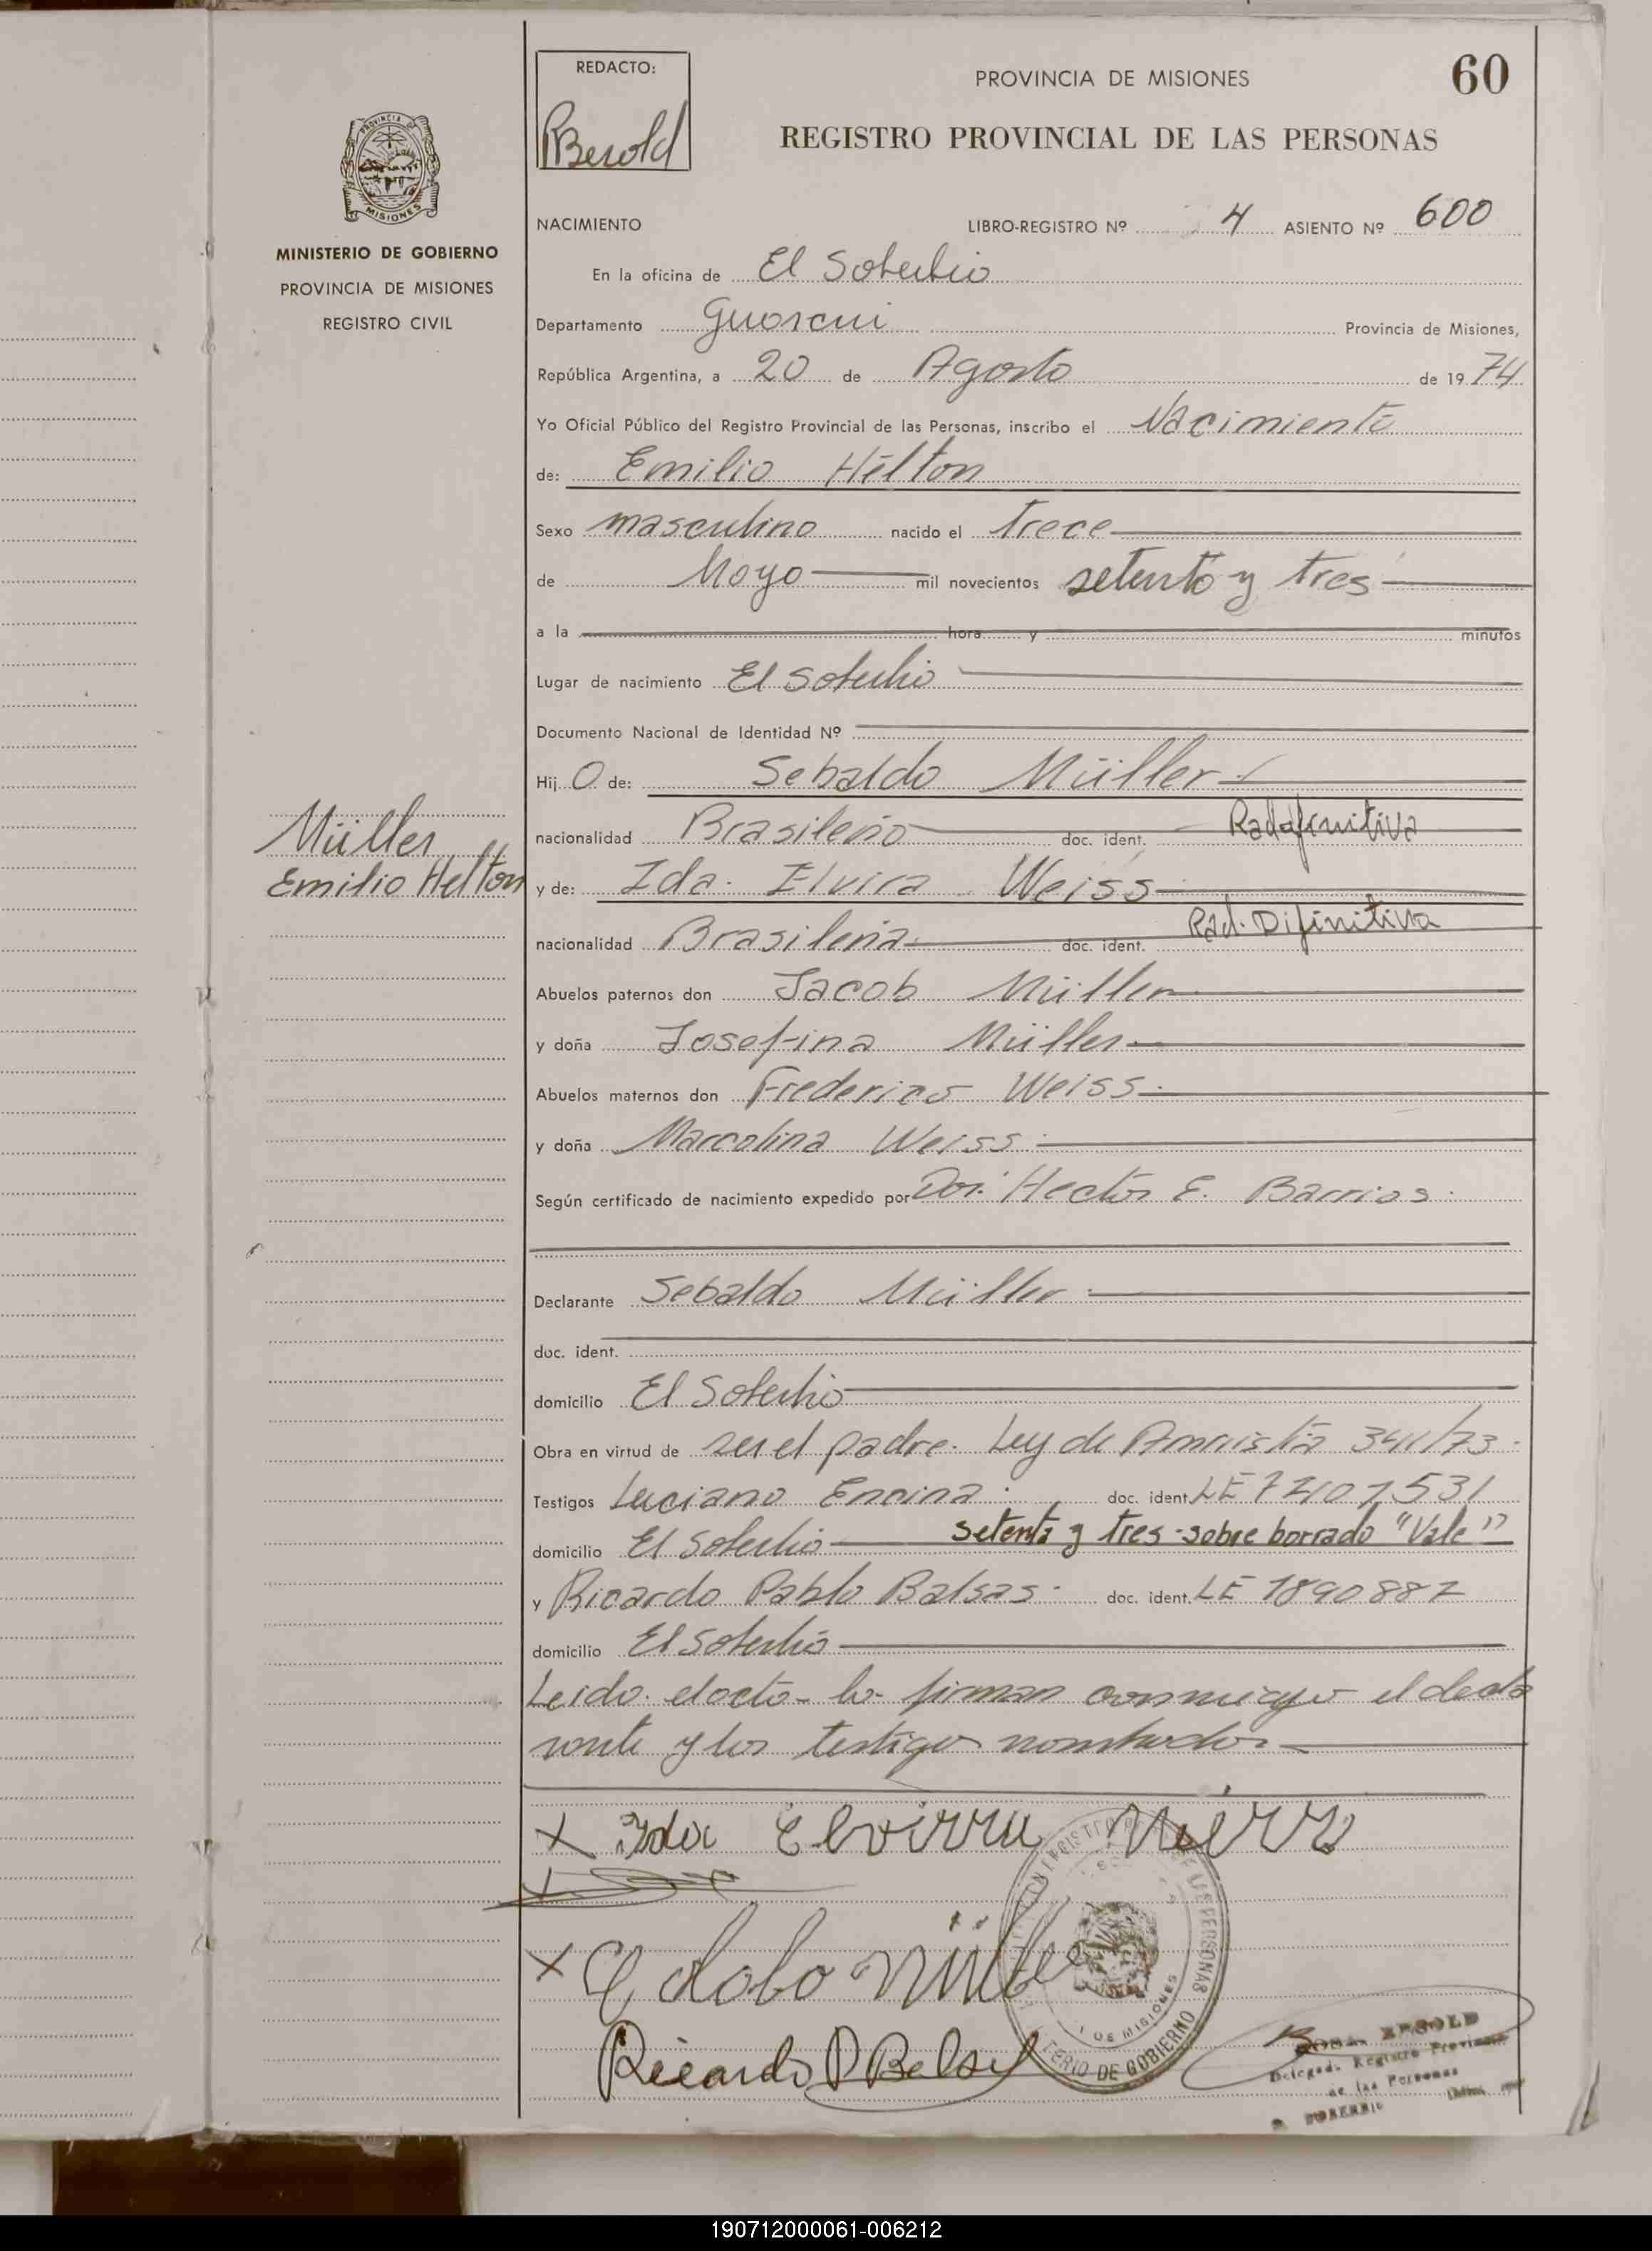 REDACTO:
PBerold
PROVINCIA DE MISIONES
60
REGISTRO PROVINCIAL DE LAS PERSONAS
PROVINCIA DE
MISIONES
MINISTERIO DE GOBIERNO
PROVINCIA DE MISIONES
REGISTRO CIVIL
NACIMIENTO LIBRO-REGISTRO Nº 4 ASIENTO Nº 600
En la oficina de El Soberbio
Departamento Guarani Provincia de Misiones,
República Argentina, a 20 de Agosto de 1974
Yo Oficial Público del Registro Provincial de las Personas, inscribo el Nacimiento
de: Emilio Hélton
Sexo masculino nacido el trece
de Mayo mil novecientos setenta y tres
a la hora y minutos
Lugar de nacimiento El Soberbio
Documento Nacional de Identidad Nº
Hij O de: Sebaldo Müller
nacionalidad Brasileño doc. ident. Radefinitiva
Müller
Emilio Helton
y de: Ida Elvira Weiss
nacionalidad Brasileña doc. ident. Rad. Difinitiva
Abuelos paternos don Jacob Müller
y doña Josefina Müller
Abuelos maternos don Frederico Weiss
y doña Marcolina Weiss
Según certificado de nacimiento expedido por Don Hector E. Barrios
Declarante Sebaldo Müller
doc. ident.
domicilio El Soberbio
Obra en virtud de ser el padre. Ley de Amnistia 3411/73
Testigos Luciano Encina doc. ident.
domicilio El Soberbio setenta y tres-sobre borrado "Vale"
y Ricardo Pablo Balsas doc. ident. LE 7890887
domicilio El Soberbio
Leido el acta lo firman conmigo el decla
rante y los testigos nombrados
X Ida Elvirra
X
X Müller
Ricardo P Bals
DE LAS PERSONAS
DE MISIONES
TERIO DE GOBIERNO
BEROLD
Delegad. Registro Provincial
de las Personas
SOBERBIO
190712000061-006212